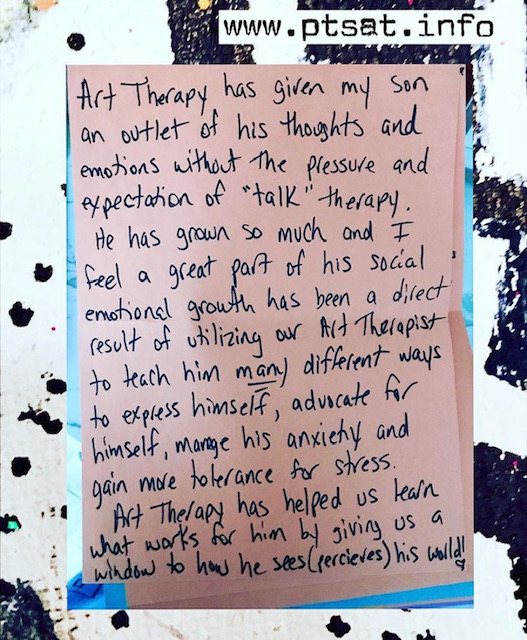 www.ptsat.info
Art Therapy has given my son
an outlet of his thoughts and
emotions without the pressure and
expectation of "talk" therapy.
He has grown so much and I
feel a great part of his social
emotional growth has been a direct
result of utilizing our Art Therapist
to teach him many different ways
to express himself, advocate for
himself, manage his anxiety and
gain more tolerance for stress.
Art Therapy has helped us learn
what works for him by giving us a
window to how he sees (percieves) his world!